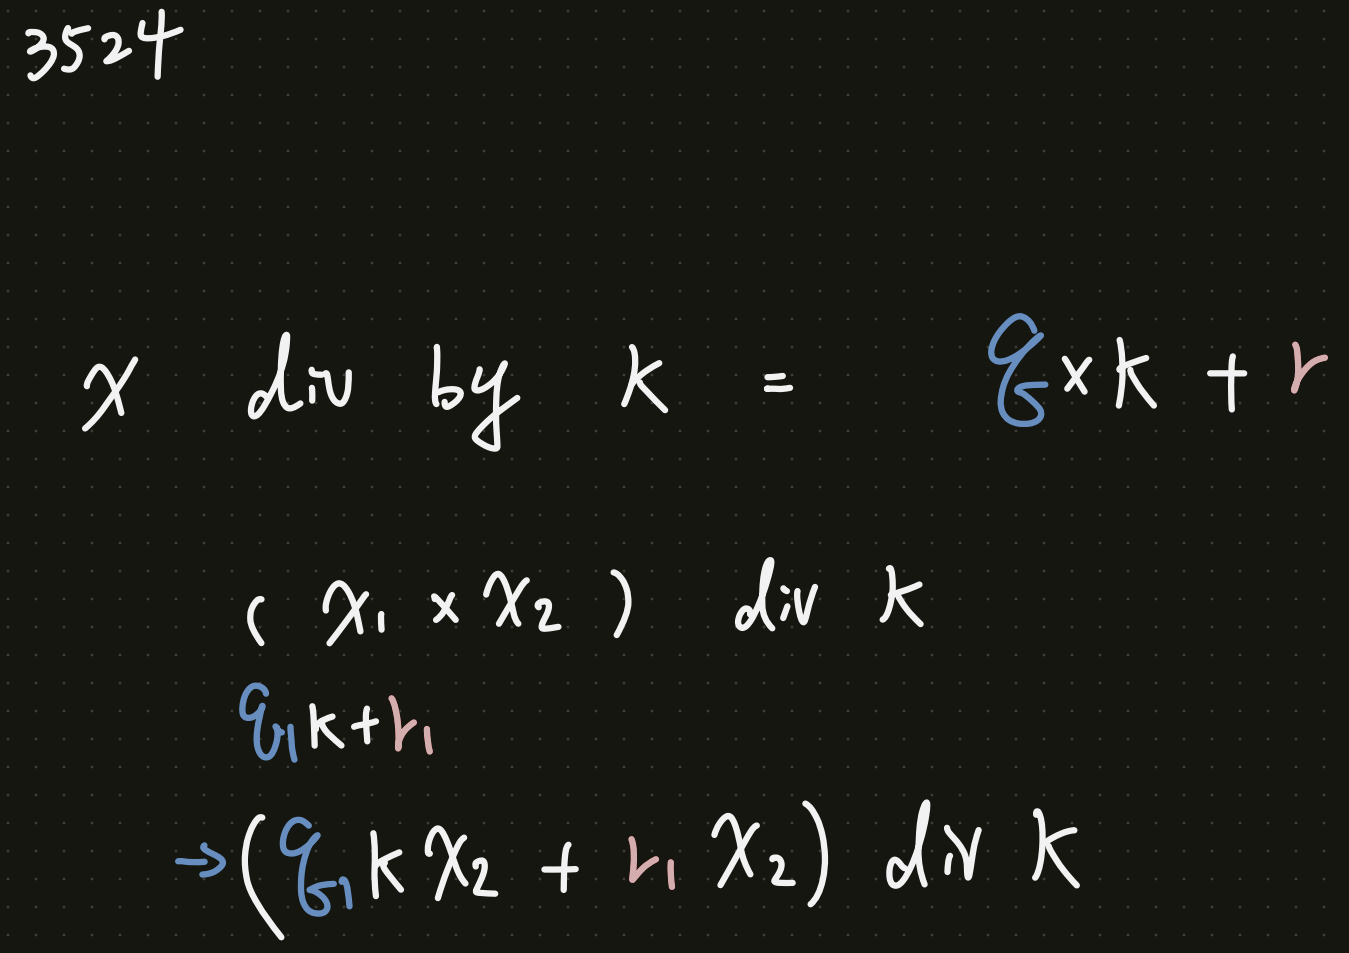 3524
x div by k = q×k + r
( x₁ × x₂ ) div k
q₁k+r₁
→(q₁kx₂ + r₁x₂) div k